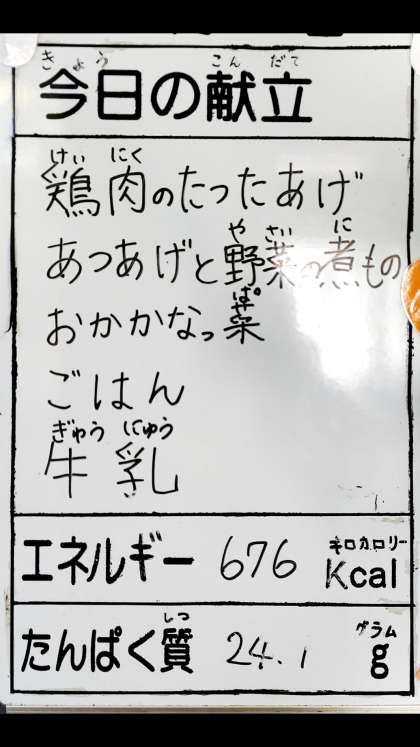 きょう こんだて
今日の献立
けい にく
鶏肉のたったあげ
や さい に
あつあげと野菜の煮もの
ぱ
おかかなっ菜
ごはん
ぎゅう にゅう
牛乳
キロカロリー
エネルギー 676 Kcal
しつ グラム
たんぱく質 24.1 g